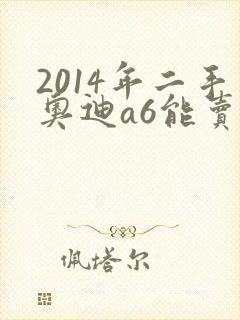 2014年二手
奥迪a6能賣
佩塔尔